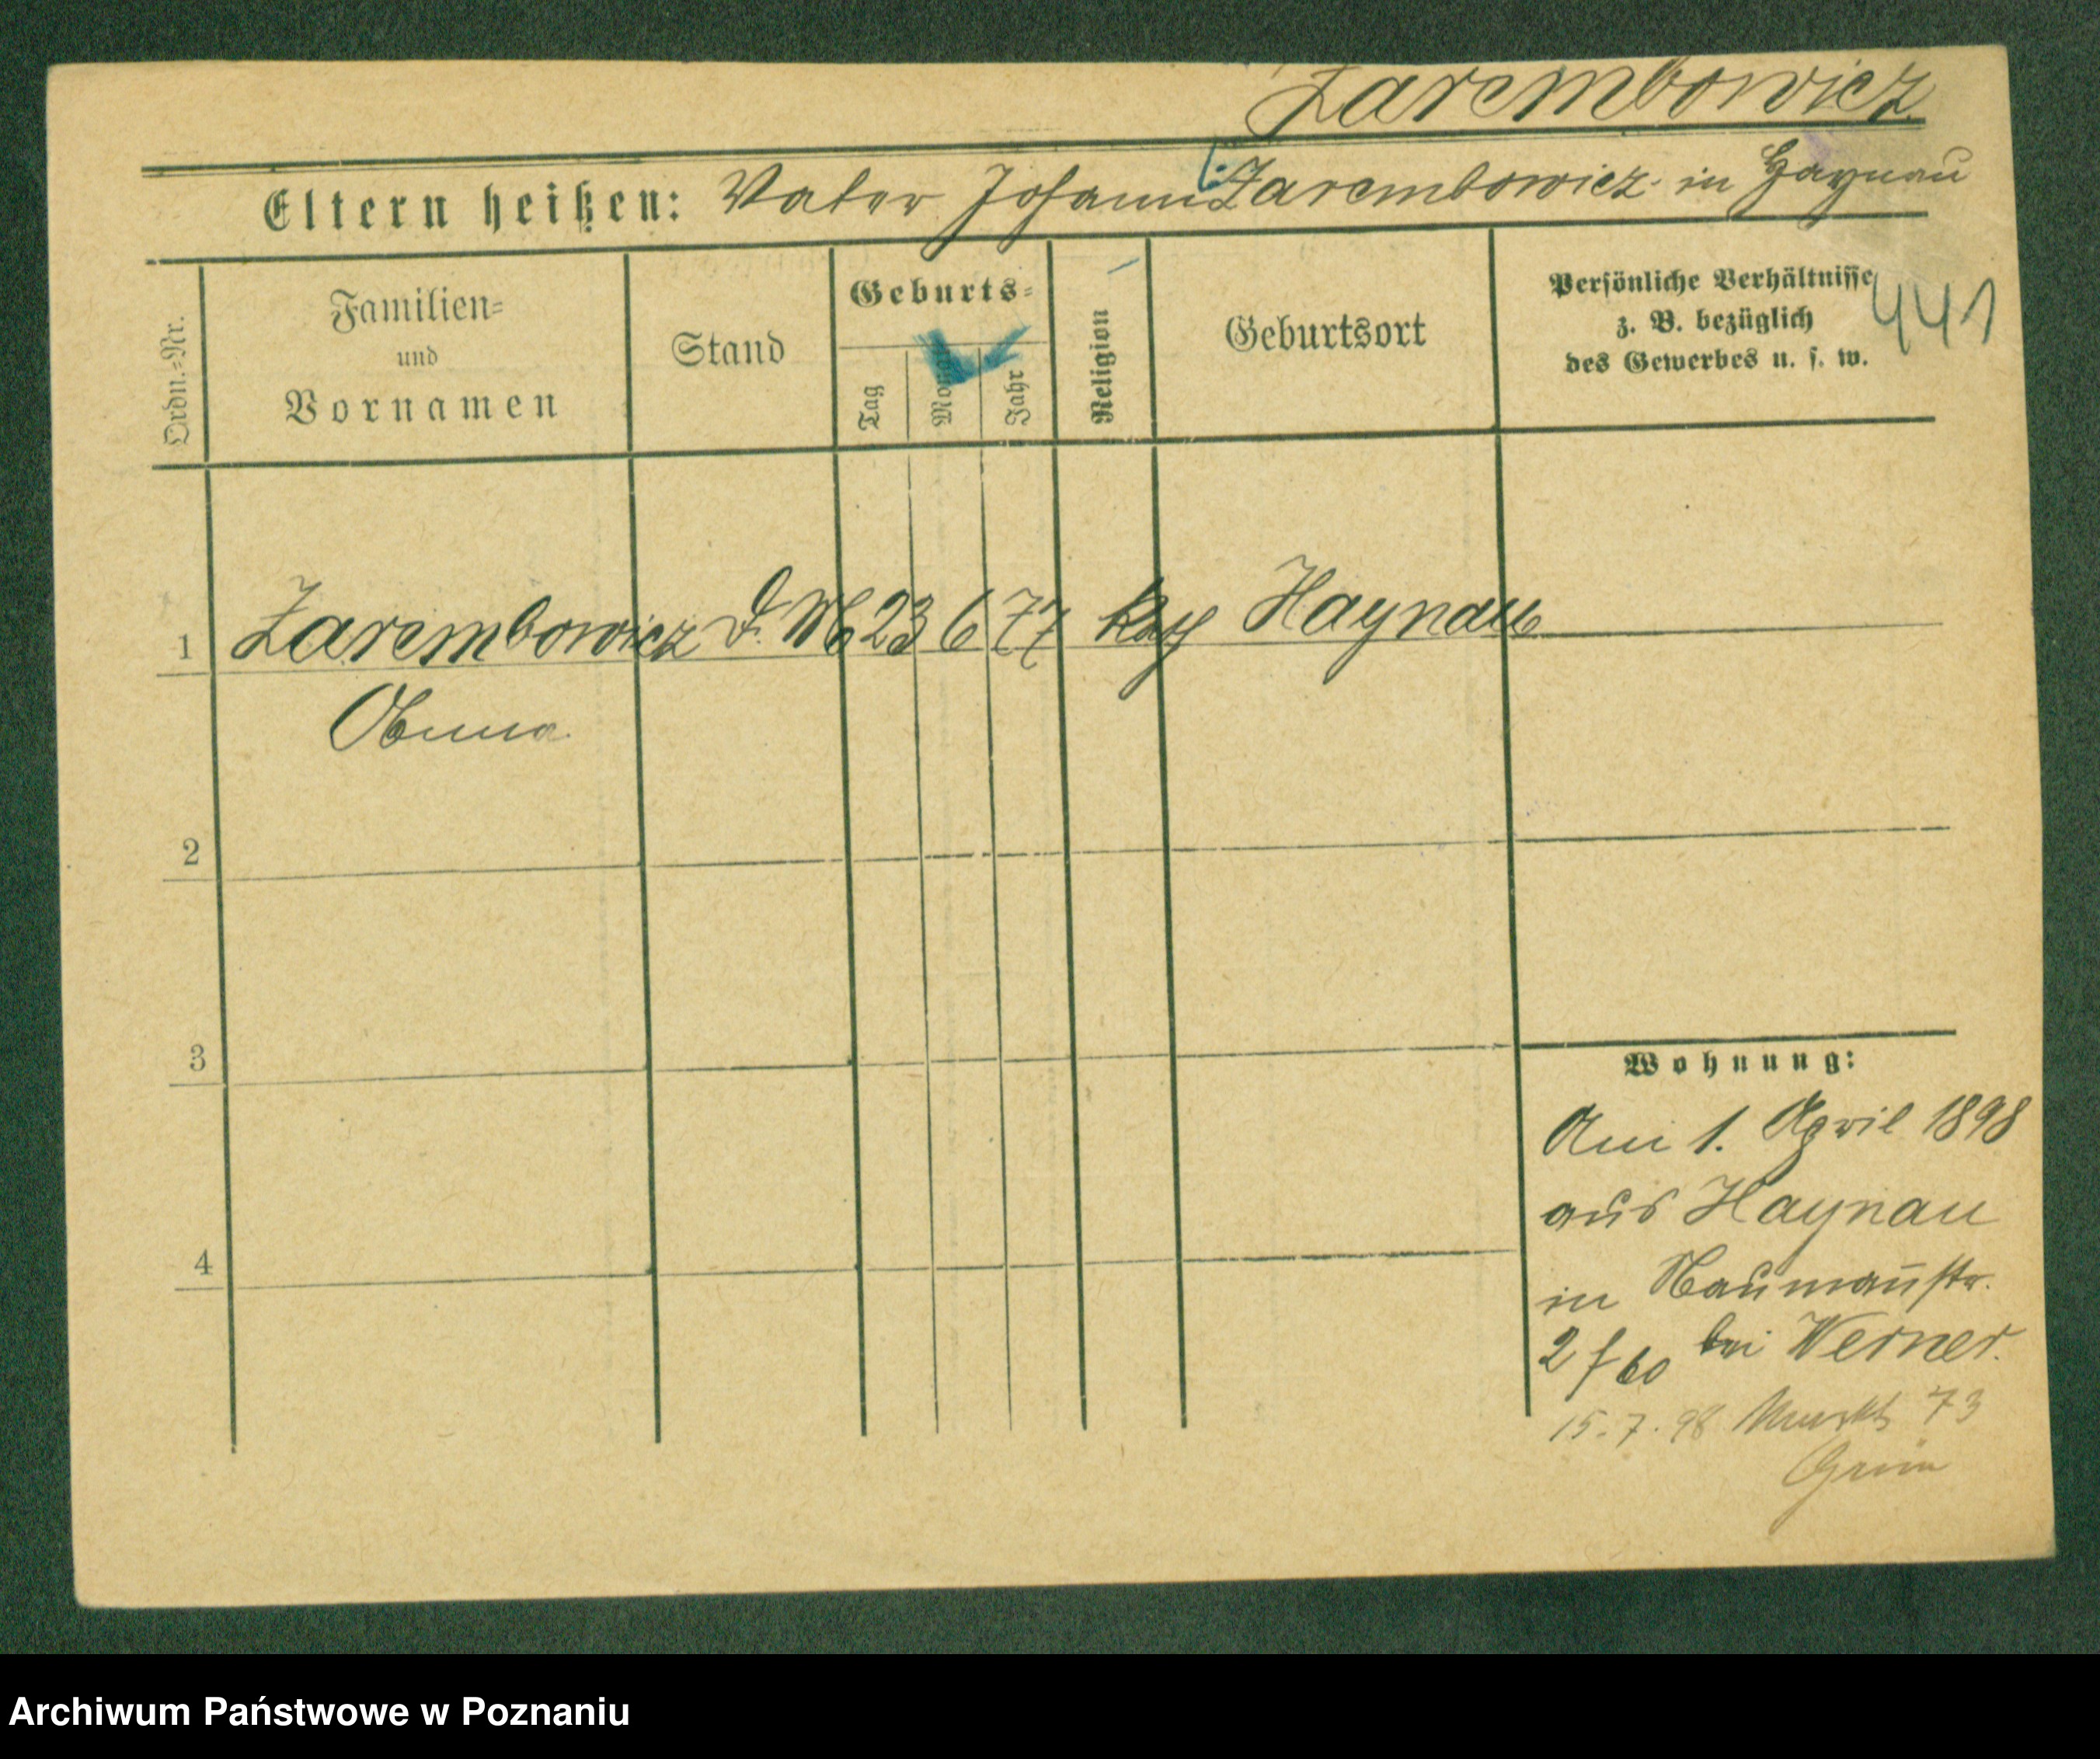 Zarembowicz
Eltern heißen: Vater Johann Zarembowicz in Haynau
Ordn.-Nr.
Familien-
und
Vornamen
Stand
Geburts-
Tag
Monat
Jahr
Religion
Geburtsort
Persönliche Verhältnisse
z. B. bezüglich
des Gewerbes u. s. w.
441
1 Zarembowicz D. M. 23 6 77 kath Haynau
Anna
2
3
4
Wohnung:
Am 1. April 1898
aus Haynau
in Naumannstr.
2 bei Werner.
15.7.98 Markt 73
Grün
Archiwum Państwowe w Poznaniu